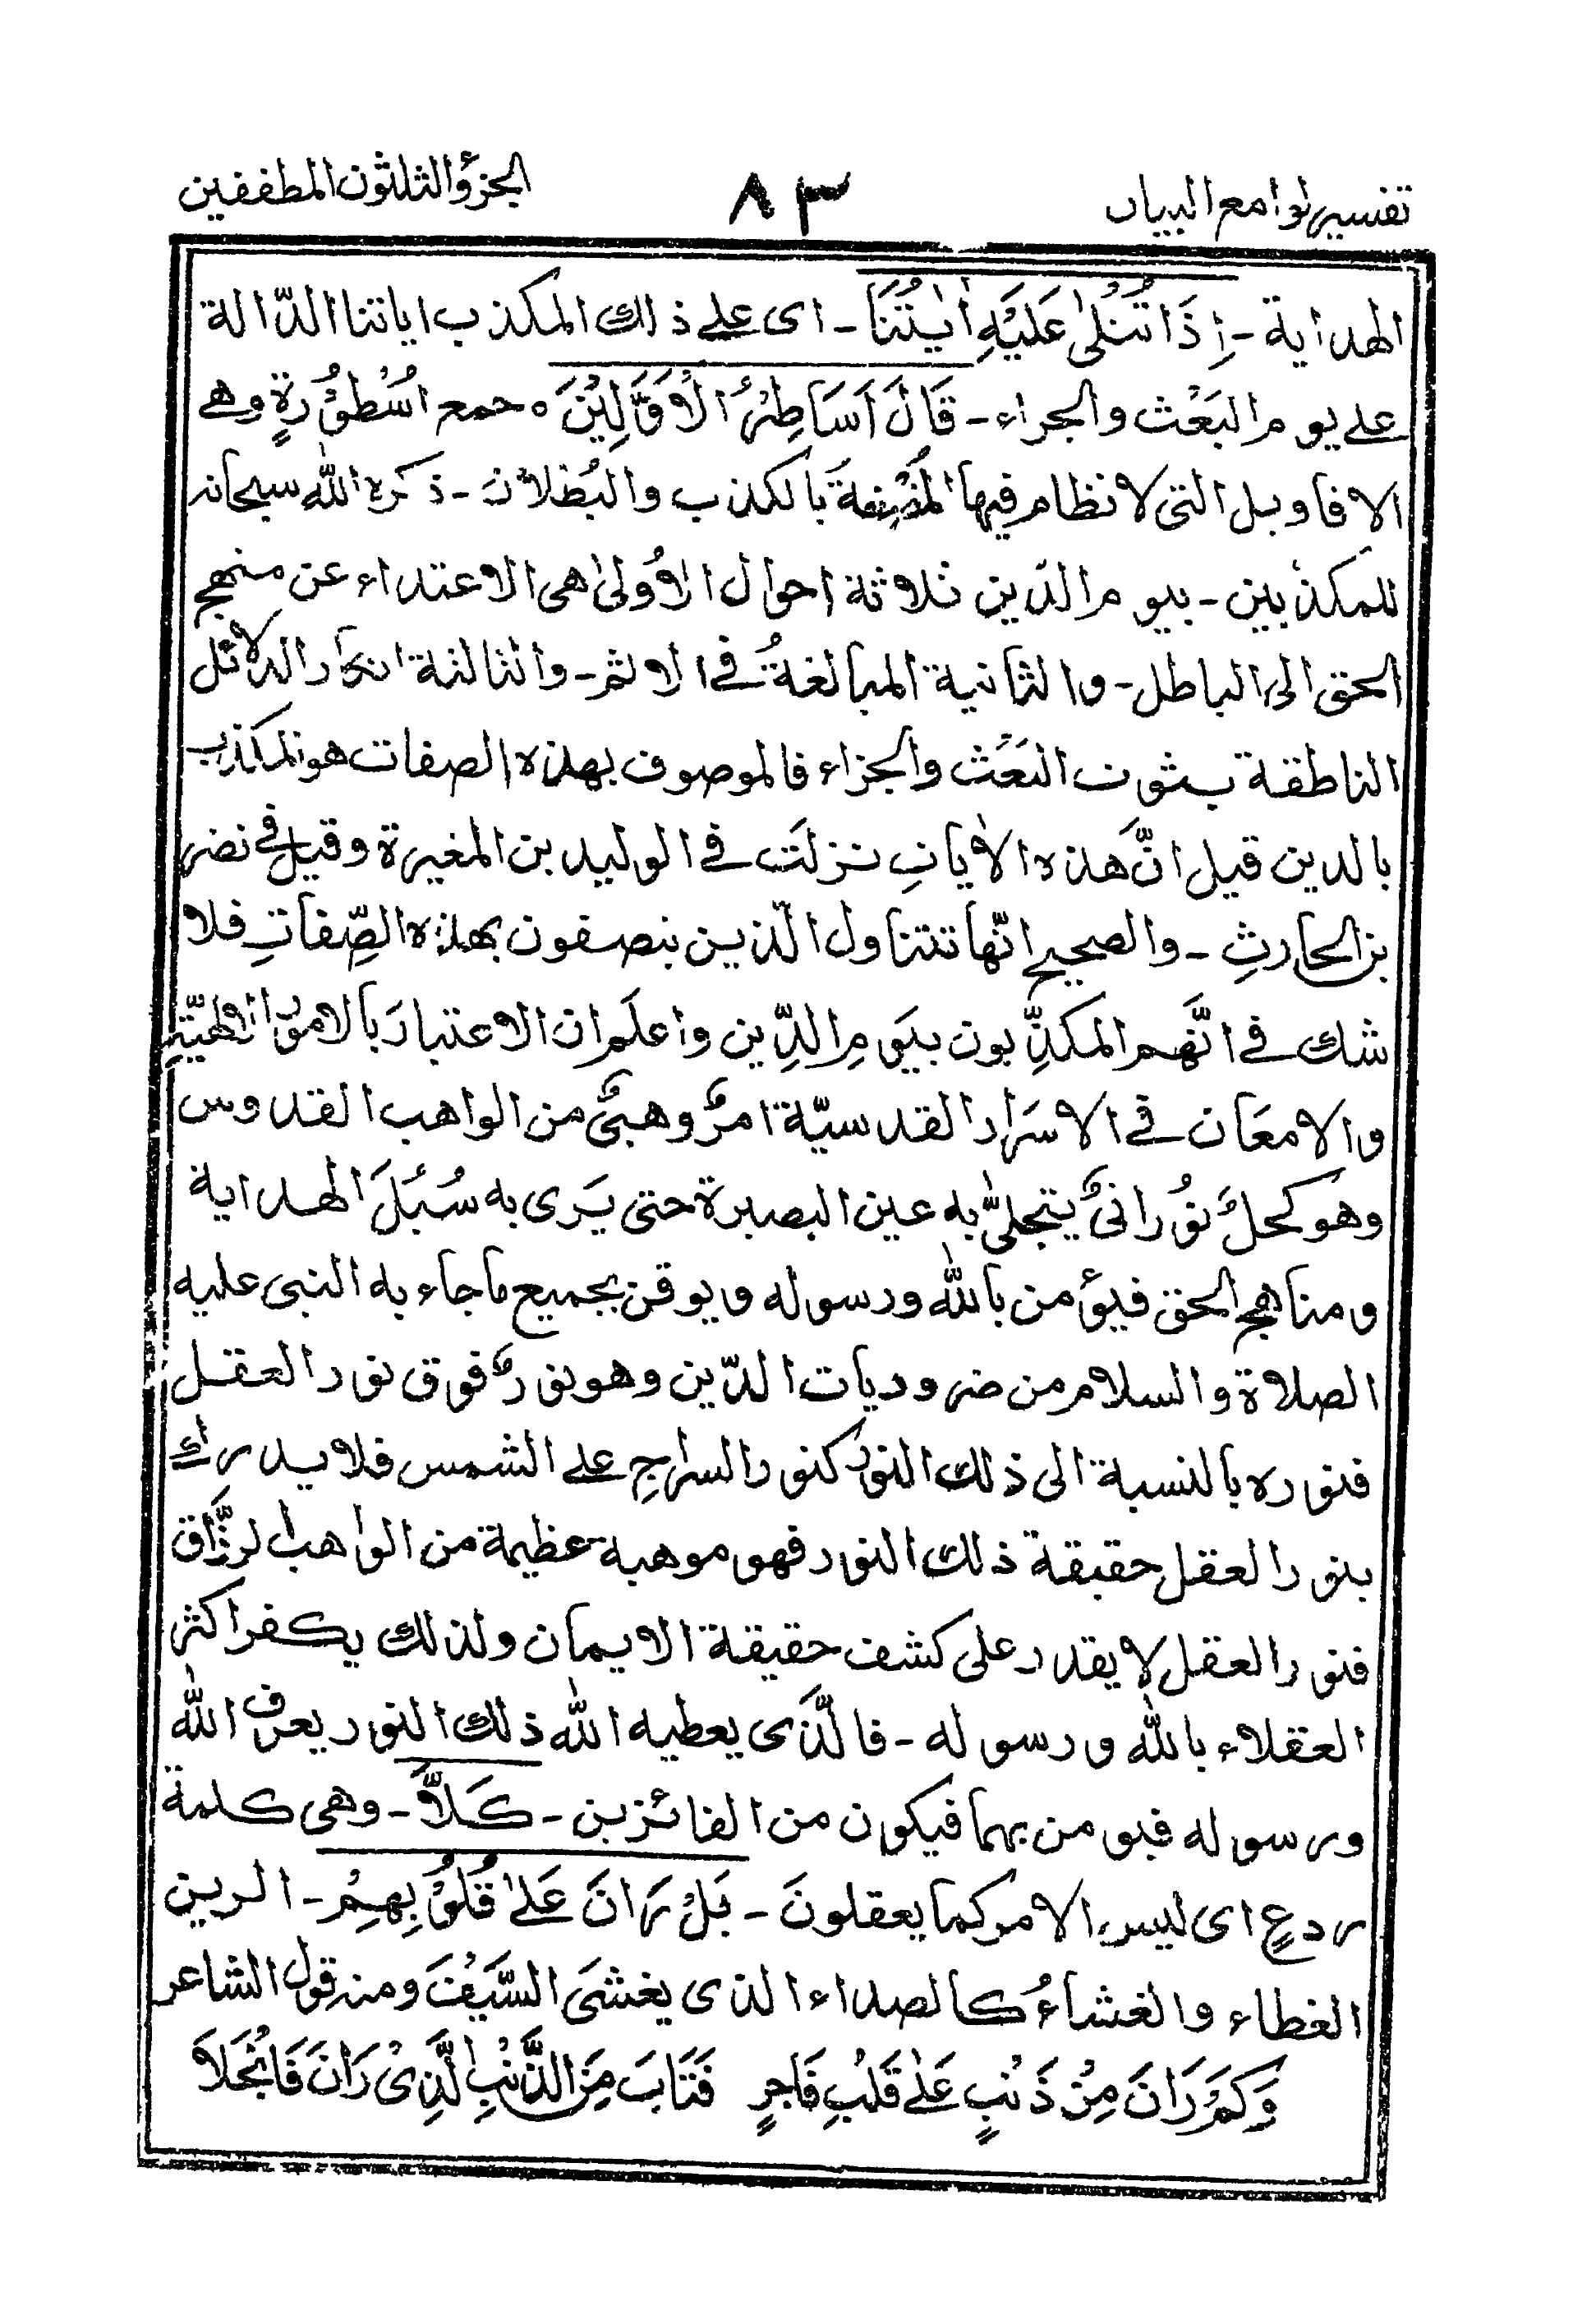 تفسير لوامع البيان ٨٣ الجزؤ الثلثون المطففين
الهداية - اِذَا تُتْلٰى عَلَيْهِ اٰيٰتُنَا - اى على ذلك المكذب اياتنا الدّالة
على يوم البَعْث والجزاء - قَالَ اَسَاطِيْرُ الْاَوَّلِيْنَ ٥ جمع اُسْطُوْرةٍ وهى
الاقاويل التى لا نظام فيها المتصفة بالكذب والبُطْلَان - ذكره الله سبحانه
للمكذبين - بيوم الدّين ثلاثة احوال الاُولىٰ هى الاعتداء عن منهج
الحق الى الباطل - والثانية المبالغةُ فى الاثم - والثالثة انكار الدلائل
الناطقة بثبوت البَعْث والجزاء فالموصوف بهذه الصفات هو المكذب
بالدين قيل انَّ هذه الاٰياتِ نزلَت فى الوليد بن المغيرة وقيل فى نضر
بن الحارثِ - والصحيح انّها تتناول الّذين يتصفون بهذه الصِّفاتِ فلا
شك فى انَّهم المكذِّبون بيَومِ الدِّين واعلَم ان الاعتبارَ بالامور الالٰهيّة
والامعَان فى الاسرَار القدسيّة امرٌ وهبىٌّ من الواهب القدوس
وهو كحلٌ نُورانىٌّ يتجلّٰى به عين البصيرة حتى يَرى به سُبُلَ الهداية
ومناهج الحق فيؤمن بالله ورسوله ويوقن بجميع ما جاء به النبى عليه
الصلاة والسلام من ضروريات الدّين وهو نورٌ فوق نور العقل
فنوره بالنسبة الى ذلك النور كنور السراجِ على الشمس فلا يدرك
بنور العقل حقيقة ذلك النور فهو موهبة عظيمة من الواهب الرزَّاق
فنور العقل لا يقدر على كشف حقيقة الايمان ولذلك يكفر اكثر
العقلاء بالله ورسوله - فالَّذى يعطيه الله ذلك النور يعرف الله
ورسوله فيومن بهما فيكون من الفائزين - كَلَّا - وهى كلمة
ردعٍ اى ليس الامر كما يعقلونَ - بَلْ رَانَ عَلٰى قُلُوْبِهِمْ - الرين
الغطاء والغشاءُ كالصداء الذى يغشَى السَّيْفَ ومنه قول الشاعر
وَكَمْ رَانَ مِنْ ذَنْبٍ عَلٰى قَلْبِ فَاجِرٍ فَتَابَ مِنَ الذَّنْبِ الَّذِىْ رَانَ فَانْجَلَا